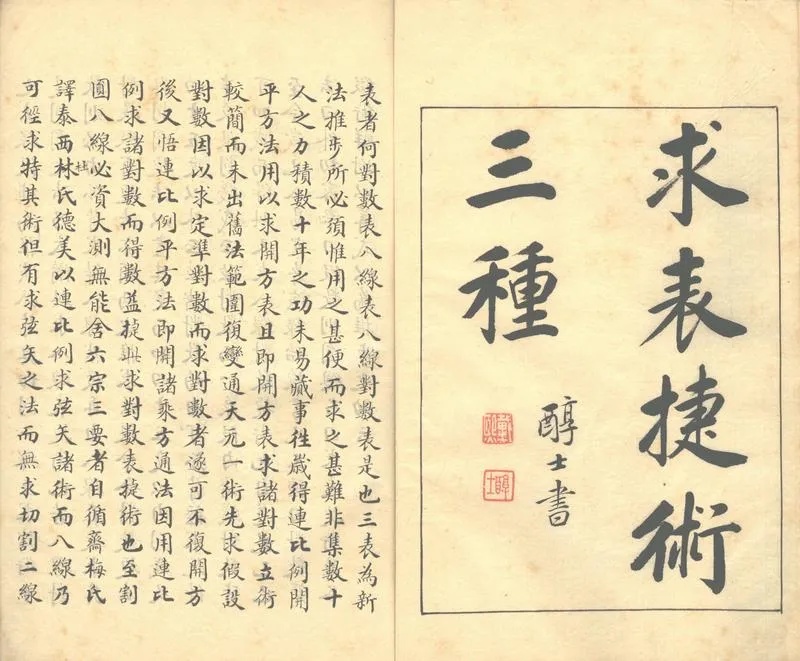 求表捷術
三種
醇士書
戴熙
醇士
表者何對數表八線表八線對數表是也三表為新
法推步所必須惟用之甚便而求之甚難非集數十
人之力積數十年之功未易蕆事往歲得連比例開
平方法用以求開方表且即開方表求諸對數立術
較簡而未出舊法範圍復變通天元一術先求假設
對數因以求定準對數而求對數者遂可不復開方
後又悟連比例平方法即開諸乘方通法因用連比
例求諸對數而得數益捷與求對數表捷術也至割
圓八線必資大測無能舍六宗三要者自循齋梅氏
譯泰西杜林氏德美以連比例求弦矢諸術而八線乃
可徑求特其術但有求弦矢之法而無求切割二線